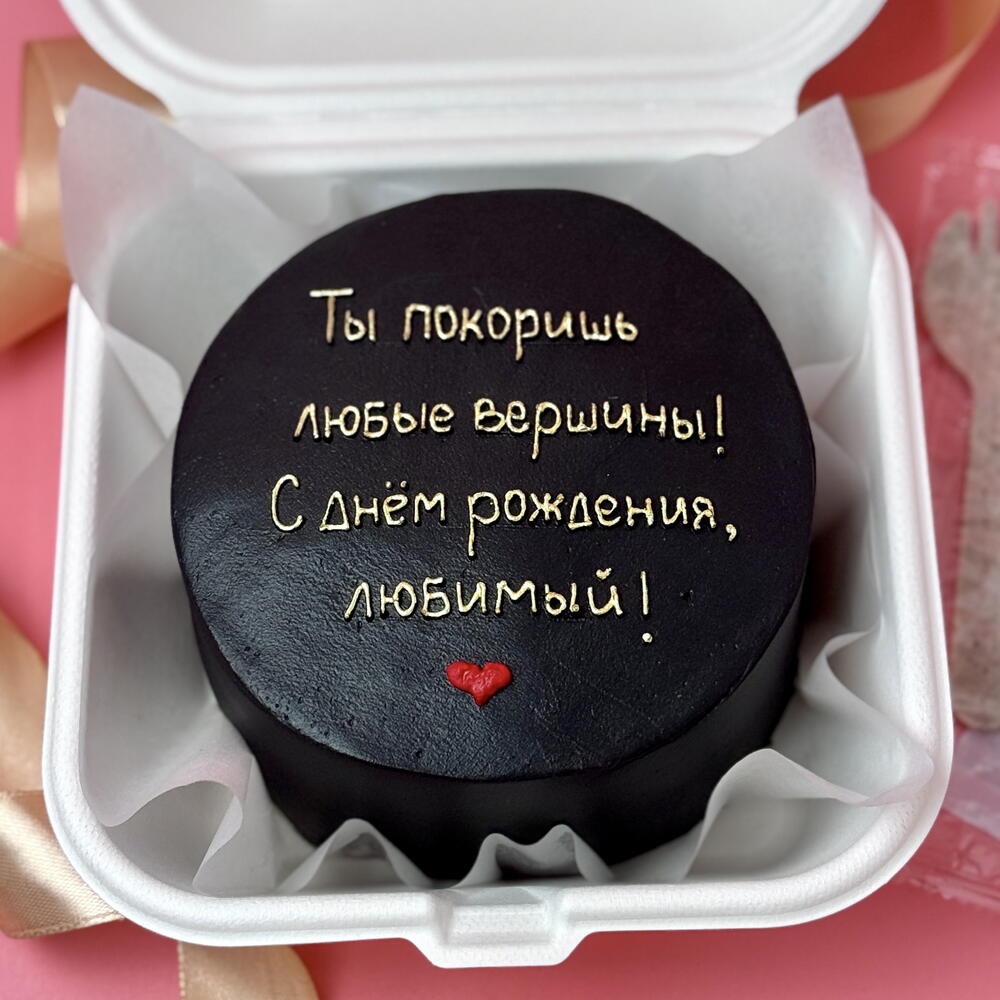 Ты покоришь
любые вершины!
С днём рождения,
любимый!